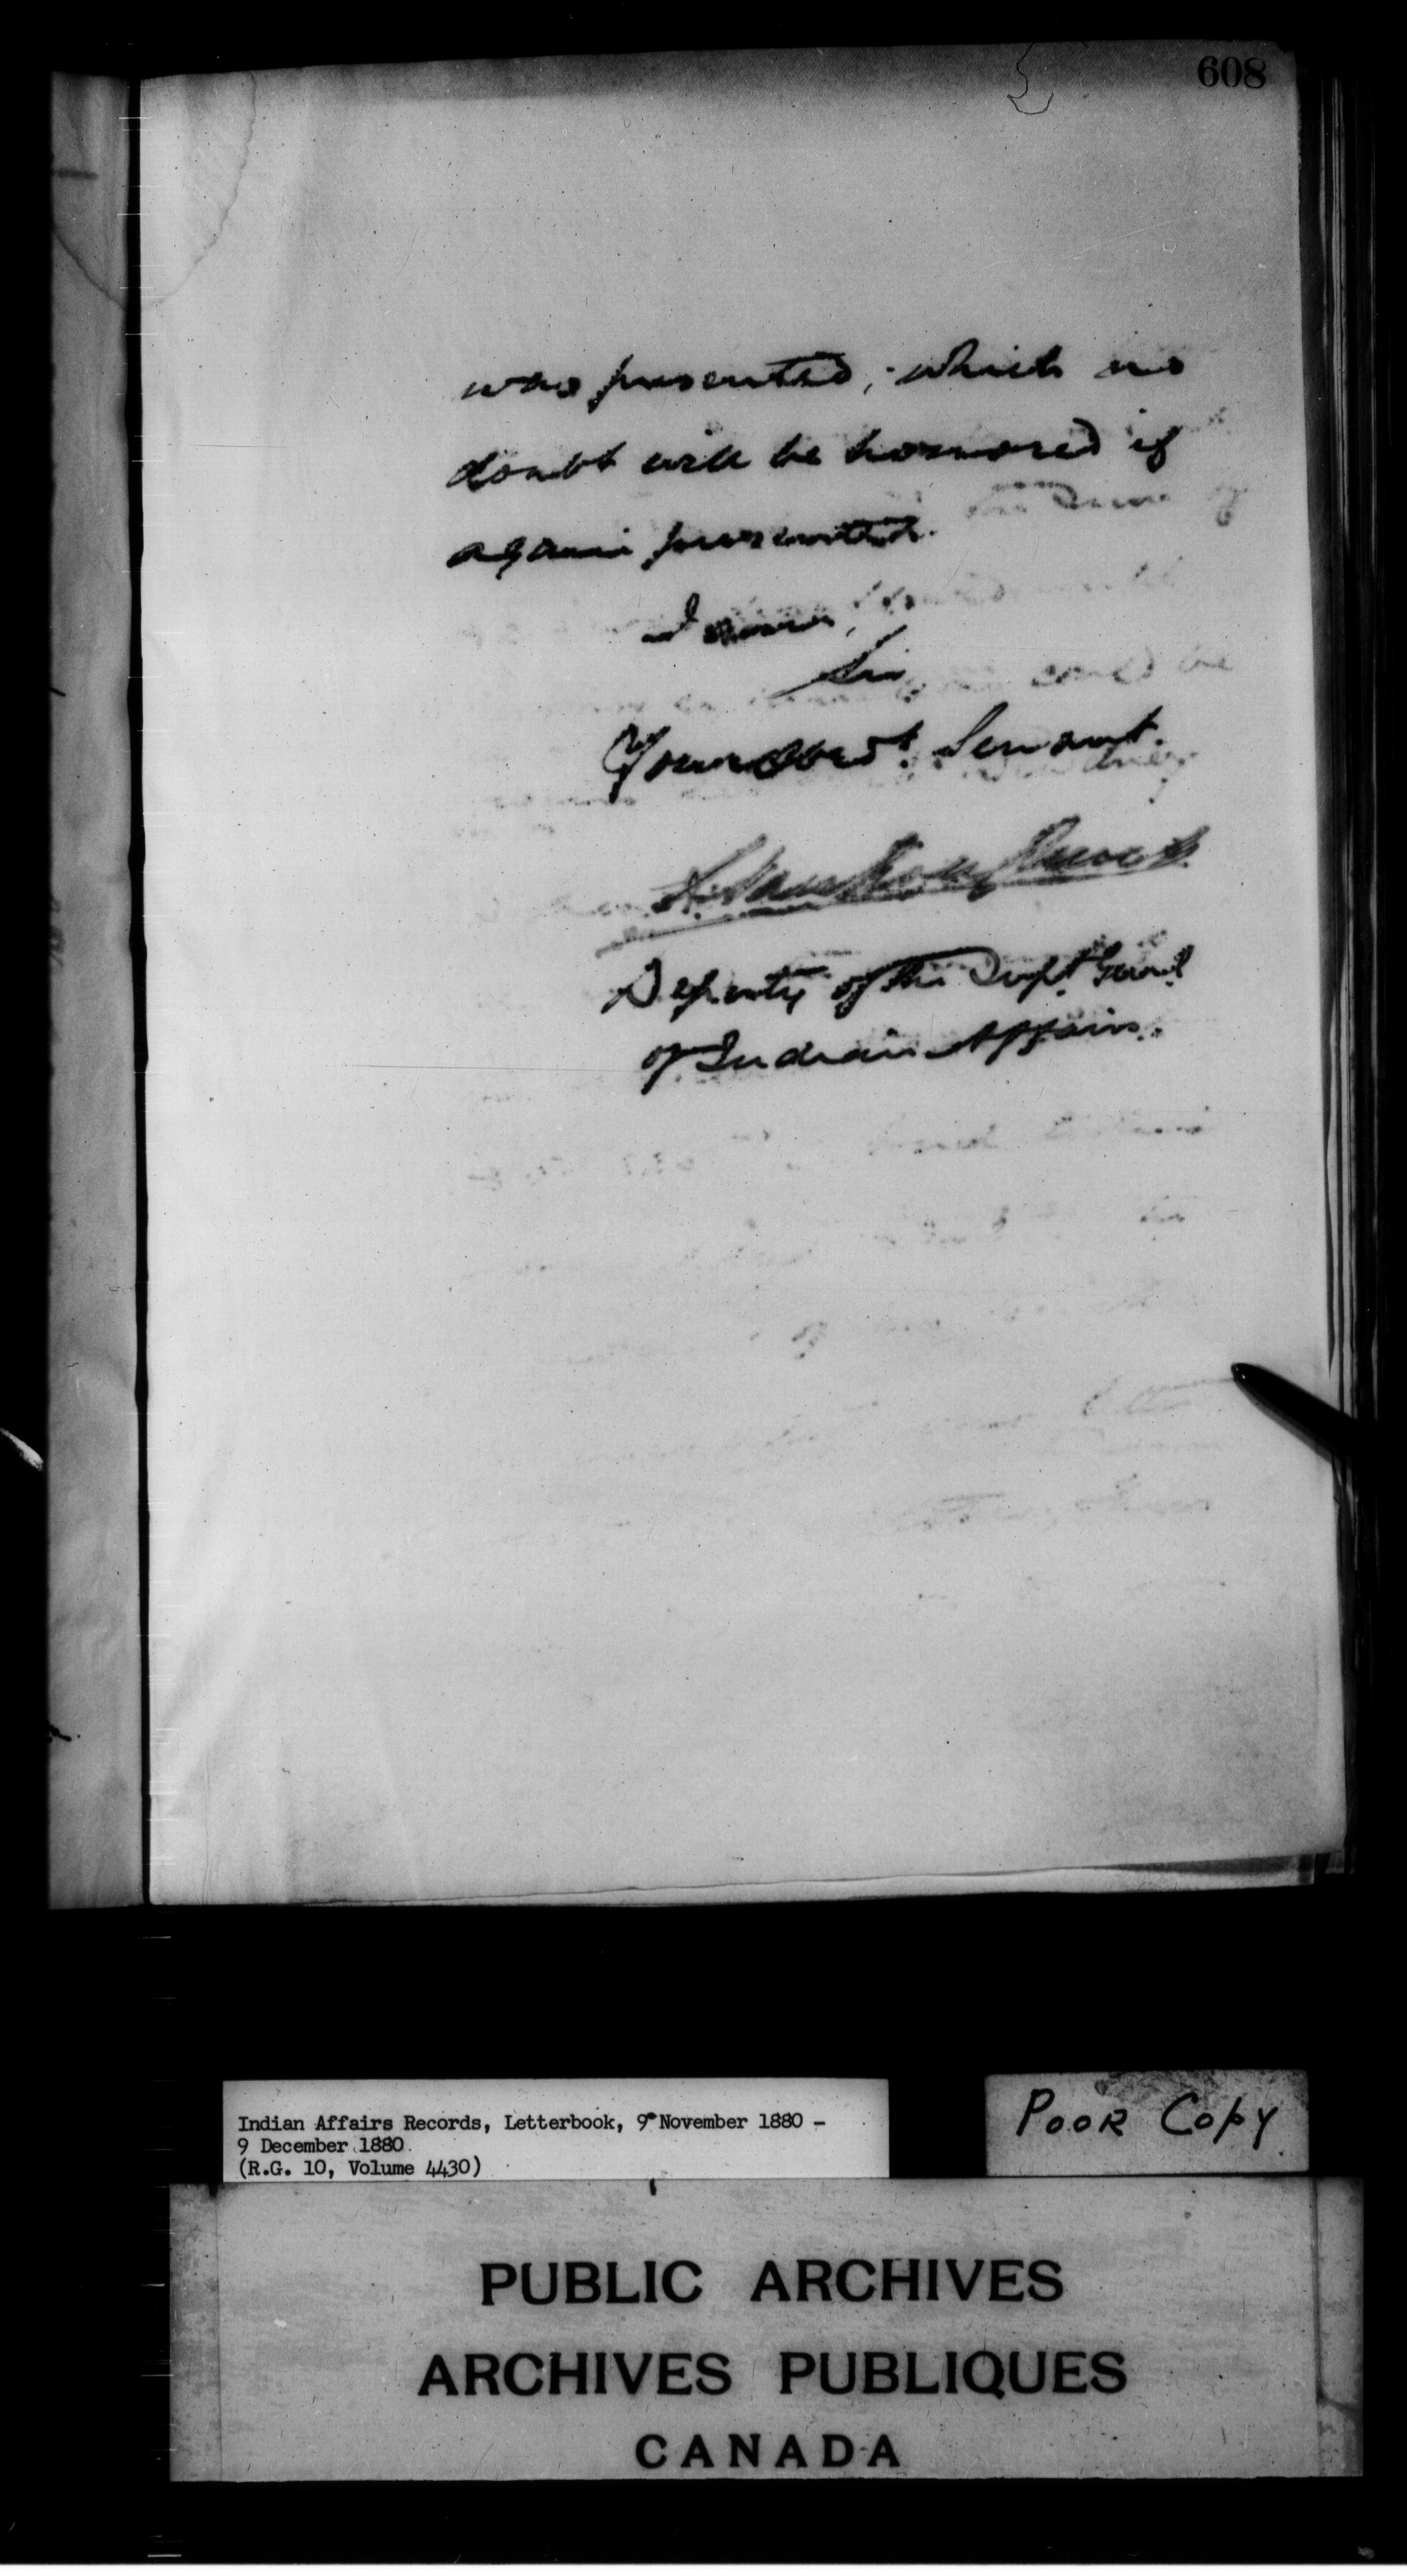 608
was presented, which no
doubt will be honored if
again presented.
I am,
Sir
Your Obedt. Servant.
L. VanKoughnet
Deputy of the Supt. Genl.
of Indian Affairs.
Indian Affairs Records, Letterbook, 9 November 1880 -
9 December 1880.
(R.G. 10, Volume 4430)
POOR COPY
PUBLIC ARCHIVES
ARCHIVES PUBLIQUES
CANADA